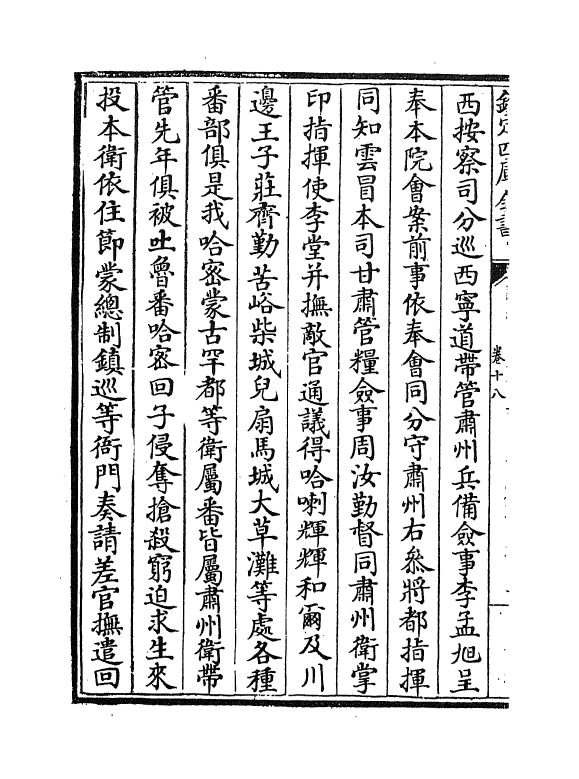 欽定四庫全書
卷十八
西按察司分巡西寧道帶管肅州兵備僉事李孟旭呈
奉本院會案前事依奉會同分守肅州右叅將都指揮
同知雲冒本司甘肅管糧僉事周汝勤督同肅州衛掌
印指揮使李堂并撫敵官通議得哈喇輝輝和爾及川
邊王子莊齊勤苦峪柴城兒扇馬城大草灘等處各種
番部俱是我哈密蒙古罕都等衛屬番皆屬肅州衛帶
管先年俱被吐魯番哈密回子侵奪搶殺窮迫求生來
投本衛依住節蒙總制鎮巡等衙門奏請差官撫遣回